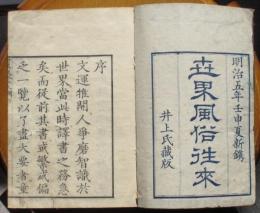 明治五年壬申夏新鐫
世界風俗往來
井上氏藏版
序
文運推開人爭磨智識於
世界當此時譯書之務急
矣而從前其書或繁或偏
之一覽以了盡大要書童